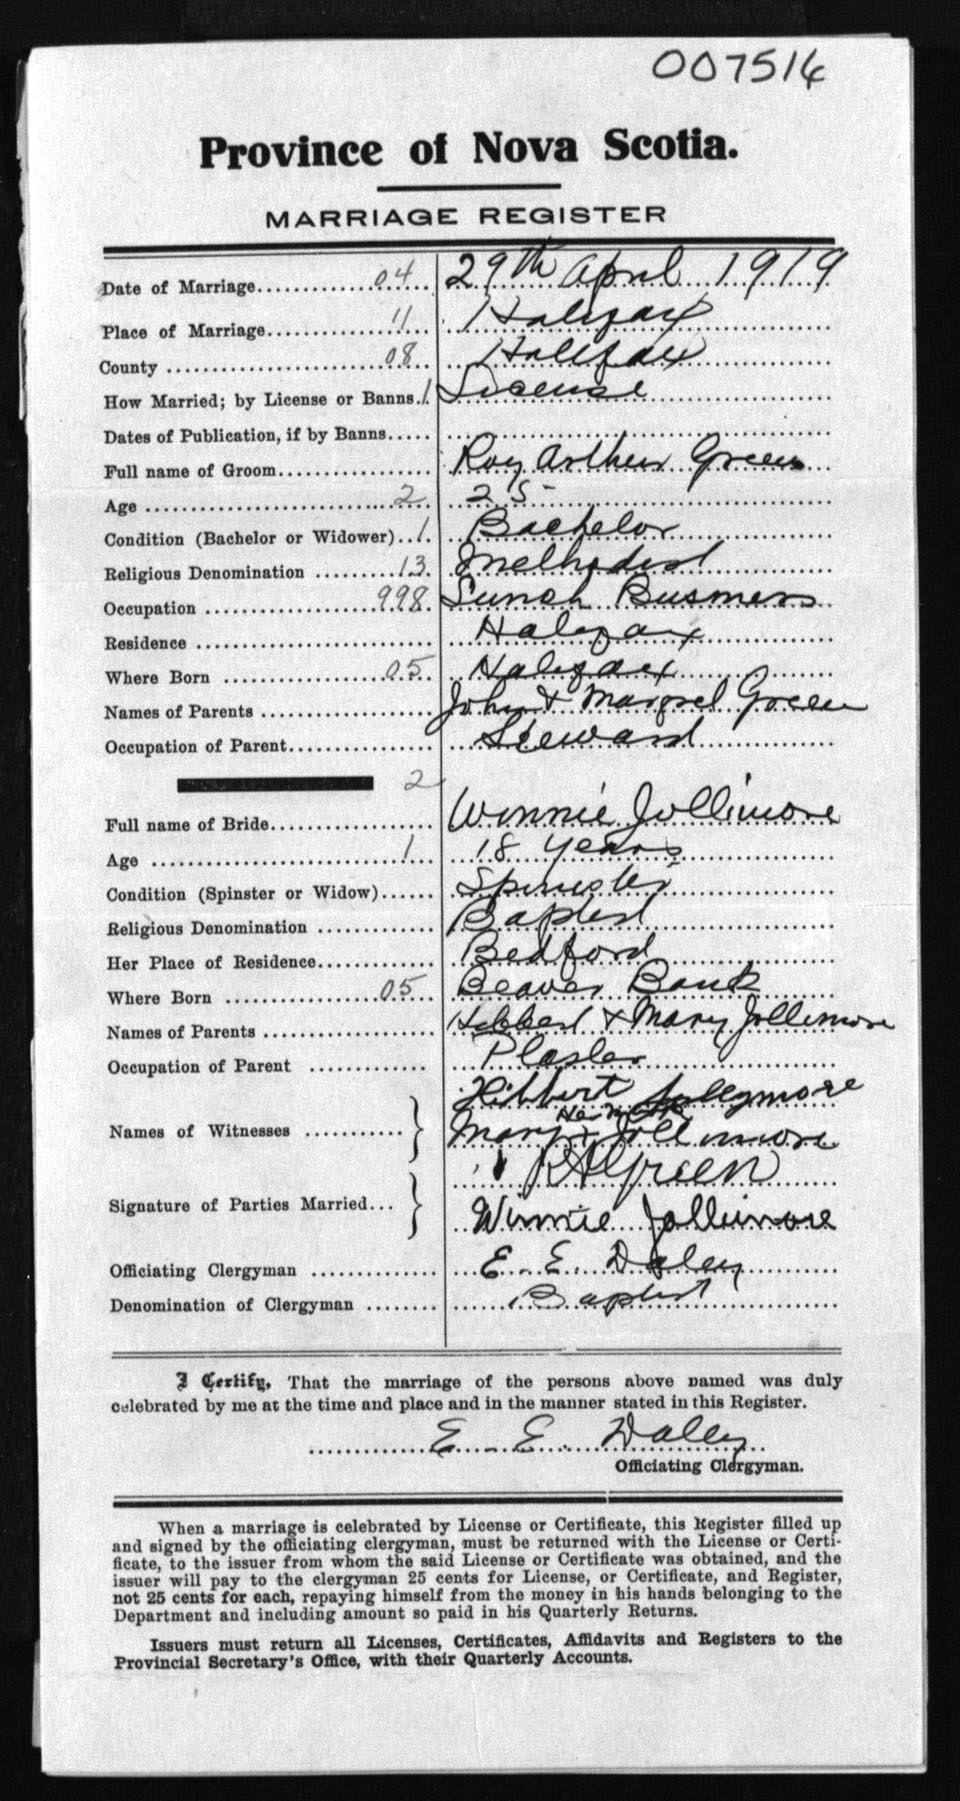 007514
Province of Nova Scotia.
MARRIAGE REGISTER
Date of Marriage 04 29th April 1919
Place of Marriage 11 Halifax
County 08 Halifax
How Married; by License or Banns 1 License
Dates of Publication, if by Banns
Full name of Groom Roy Arthur Green
Age 2 25
Condition (Bachelor or Widower) 1 Bachelor
Religious Denomination 13 Methodist
Occupation 998 Lunch Business
Residence Halifax
Where Born 05 Halifax
Names of Parents John & Margret Green
Occupation of Parent Steward
2
Full name of Bride Winnie Jollimore
Age 1 18 years
Condition (Spinster or Widow) Spinster
Religious Denomination Baptist
Her Place of Residence Bedford
Where Born 05 Beaver Bank
Names of Parents Hibbert & Mary Jollimore
Occupation of Parent Plaster
Hibbert Jollymore
Her Mark
Names of Witnesses Mary + Jollimore
R A Green
Signature of Parties Married
Winnie Jollimore
Officiating Clergyman E. E. Daley
Denomination of Clergyman Baptist
I Certify, That the marriage of the persons above named was duly
celebrated by me at the time and place and in the manner stated in this Register.
E. E. Daley
Officiating Clergyman.
When a marriage is celebrated by License or Certificate, this Register filled up
and signed by the officiating clergyman, must be returned with the License or Certi-
ficate, to the issuer from whom the said License or Certificate was obtained, and the
issuer will pay to the clergyman 25 cents for License, or Certificate, and Register,
not 25 cents for each, repaying himself from the money in his hands belonging to the
Department and including amount so paid in his Quarterly Returns.
Issuers must return all Licenses, Certificates, Affidavits and Registers to the
Provincial Secretary's Office, with their Quarterly Accounts.